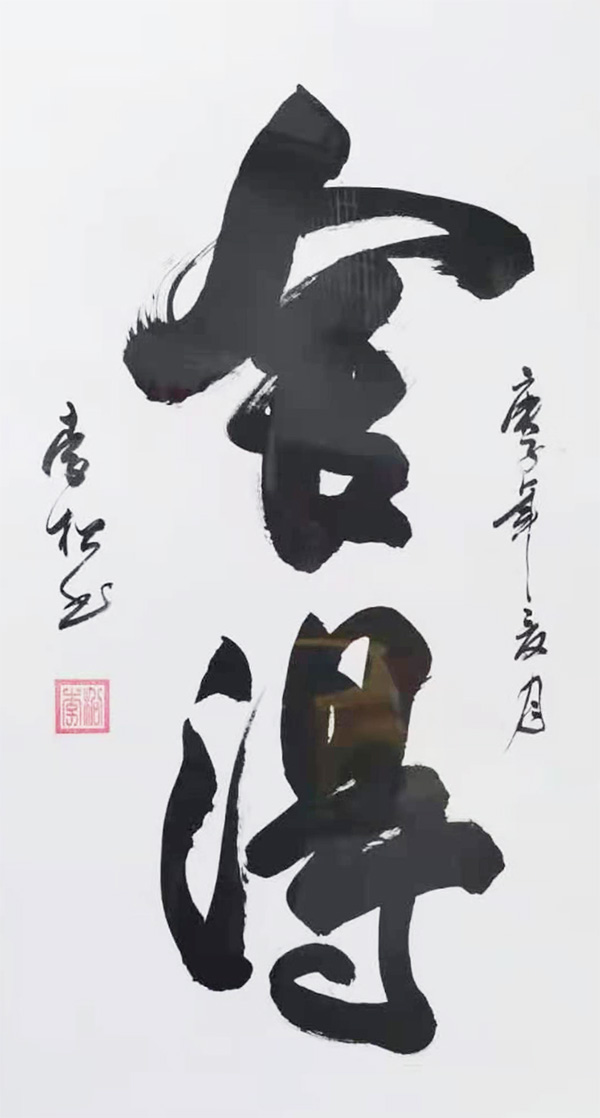 庚子年夏月
舍得
青松书